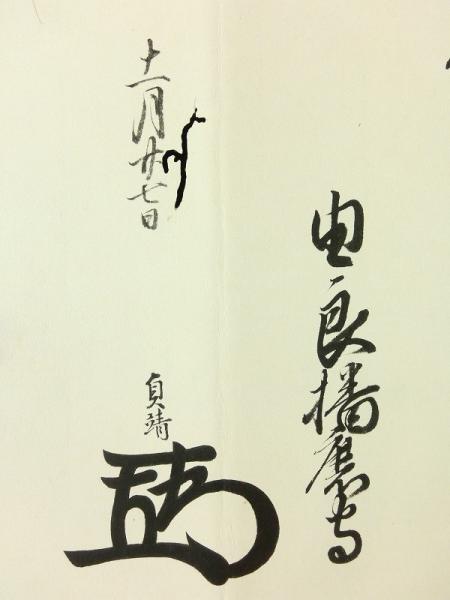 由良播磨守
十一月廿七日
貞靖